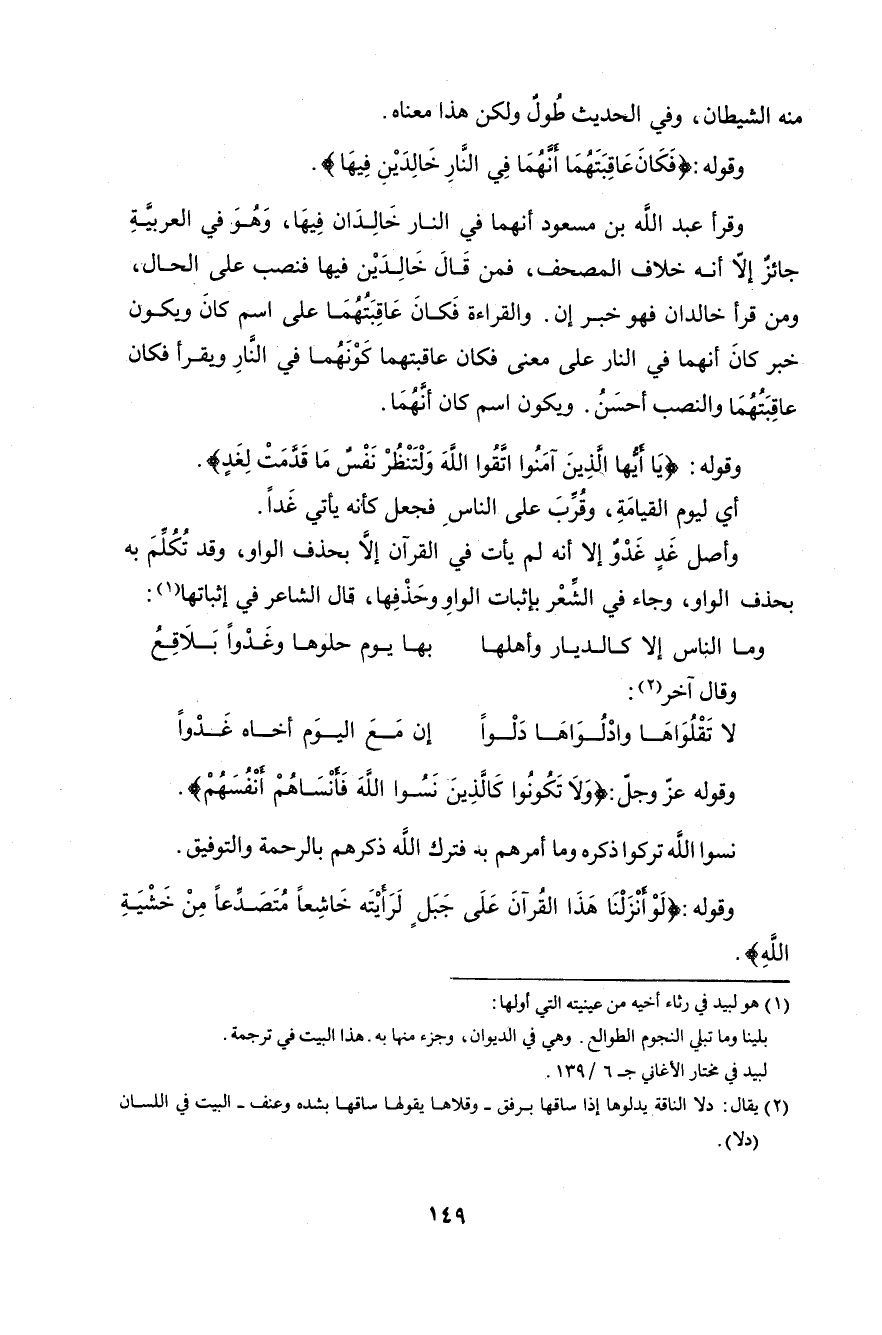 منه الشيطان، وفي الحديث طُولٌ ولكن هذا معناه.
وقوله: ﴿فَكَانَ عَاقِبَتَهُمَا أَنَّهُمَا فِي النَّارِ خَالِدَيْنِ فِيهَا﴾.
وقرأ عبد اللَّه بن مسعود أنهما في النار خَالِدَان فِيهَا، وَهُوَ في العربيَّةِ
جائزٌ إلّا أنه خلاف المصحف، فمن قَالَ خَالِدَيْن فيها فنصب على الحال،
ومن قرأ خالدان فهو خبر إن. والقراءة فَكَانَ عَاقِبَتُهُمَا على اسم كانَ ويكون
خبر كانَ أنهما في النار على معنى فكان عاقبتهما كَوْنَهُما في النَّارِ ويقرأ فكان
عاقِبَتُهُمَا والنصب أحسَنُ. ويكون اسم كان أنَّهُمَا.
وقوله: ﴿يَا أَيُّها الَّذِينَ آمَنُوا اتَّقُوا اللَّهَ وَلْتَنْظُرْ نَفْسٌ مَا قَدَّمَتْ لِغَدٍ﴾.
أي ليوم القيامَةِ، وقُرِّبَ على الناسِ فجعل كأنه يأتي غَداً.
وأصل غَدٍ غَدْوٌ إلا أنه لم يأت في القرآن إلاَّ بحذف الواو، وقد تُكُلِّمَ به
بحذف الواو، وجاء في الشِّعْر بإثبات الواوِ وحَذْفِها، قال الشاعر في إثباتها(١):
وما الناس إلا كالديار وأهلها بها يوم حلوها وغَدْواً بَلَاقِعُ
وقال آخر(٢):
لا تَقْلُوَاهَا وادْلُوَاهَا دَلْواً إن مَعَ اليوَم أخاه غَدْواً
وقوله عزّ وجلّ: ﴿وَلَا تَكُونُوا كَالَّذِينَ نَسُوا اللَّهَ فَأَنْسَاهُمْ أَنْفُسَهُمْ﴾.
نسوا اللَّه تركوا ذكره وما أمرهم به فترك اللَّه ذكرهم بالرحمة والتوفيق.
وقوله: ﴿لَوْ أَنْزَلْنَا هَذَا القُرآنَ عَلَى جَبَلٍ لَرَأَيْتَه خَاشِعاً مُتَصَدِّعاً مِنْ خَشْيَةِ
اللَّهِ﴾.
(١) هو لبيد في رثاء أخيه من عينيته التي أولها:
بلينا وما تبلى النجوم الطوالع. وهي في الديوان، وجزء منها به. هذا البيت في ترجمة.
لبيد في مختار الأغاني جـ ٦ /١٣٩.
(٢) يقال: دلا الناقة يدلوها إذا ساقها برفق - وقلاها يقولها ساقها بشده وعنف - البيت في اللسان
(دلا).
١٤٩